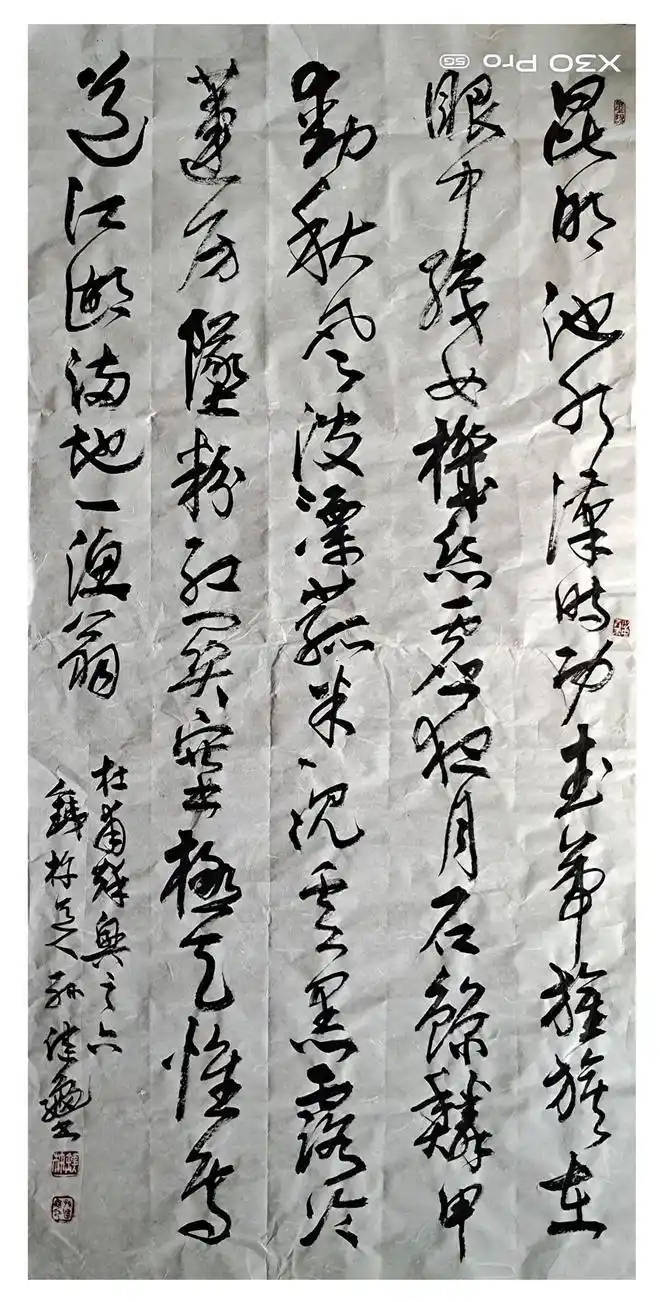 昆明池水漢時功武帝旌旗在
眼中織女機絲虛夜月石鯨鱗甲
動秋風波漂菰米沈雲黑露冷
蓮房墜粉紅關塞極天惟鳥
道江湖滿地一漁翁
杜甫秋興之六
道人孫
X30 Pro 5G